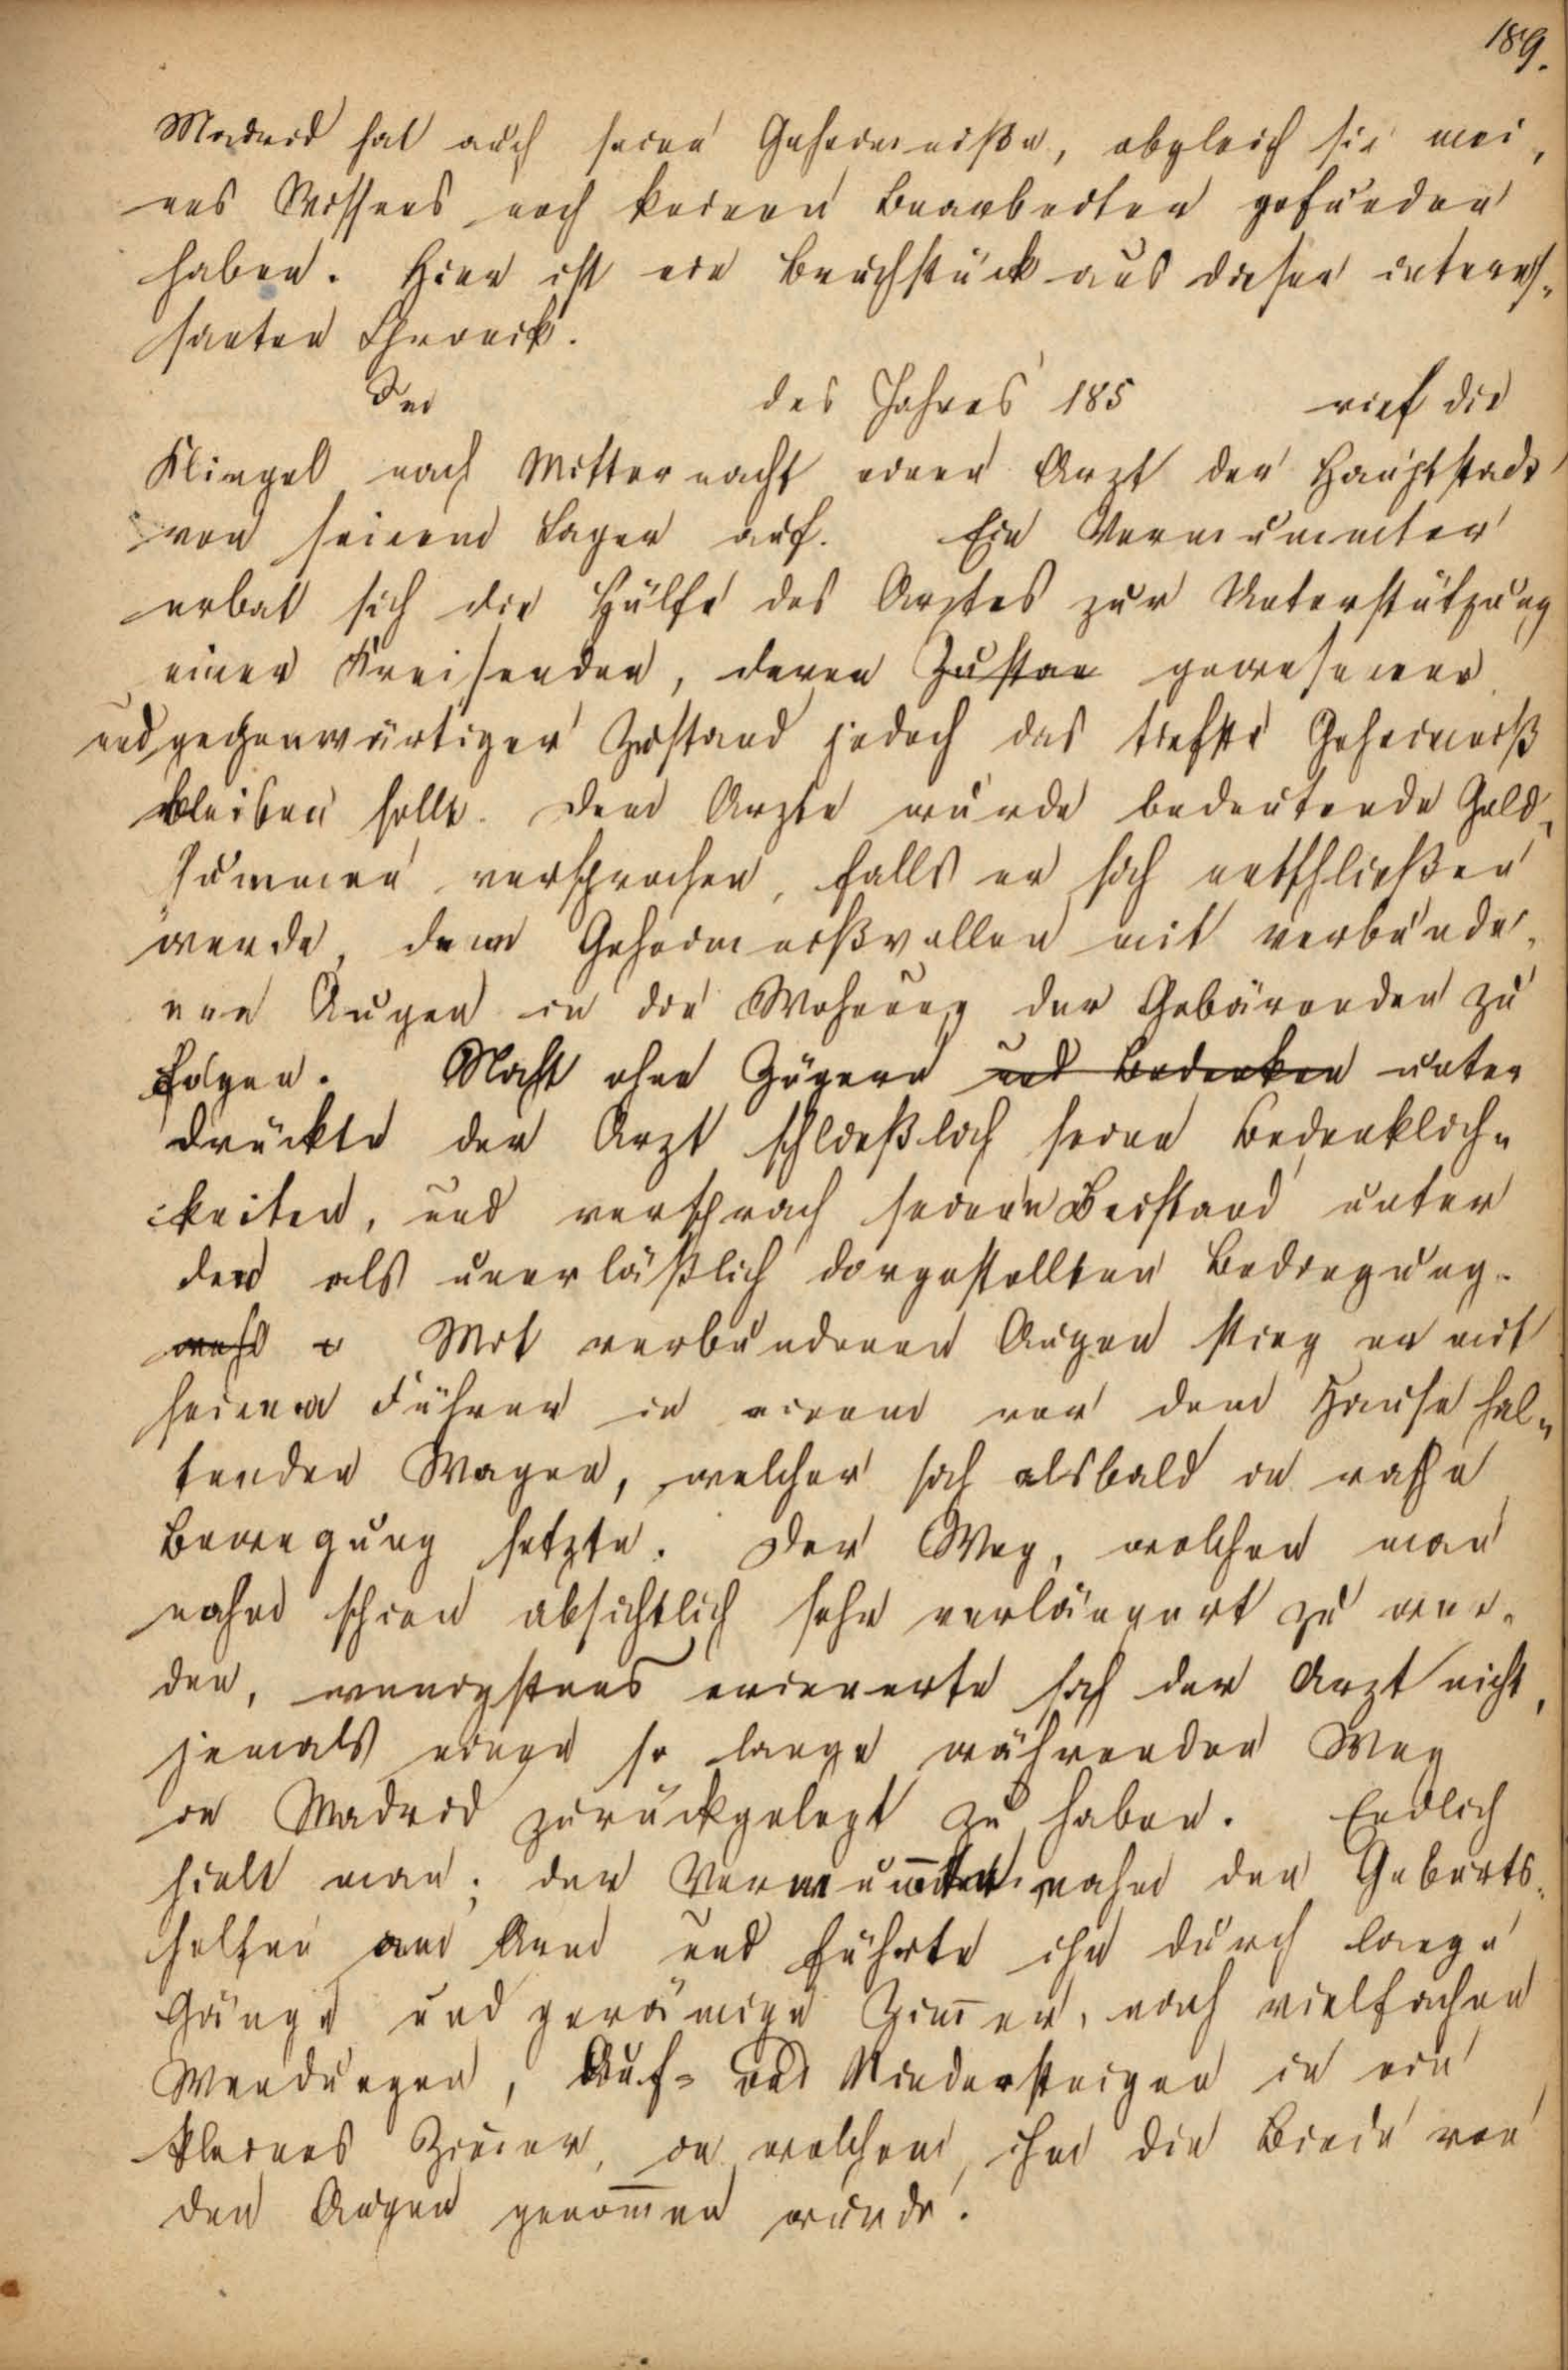 189.
Madrid hat auch seine Geheimniße, obgleich sie mei,
nes Wissens noch keinen Bearbeiter gefunden
haben. Hier ist ein Bruchstück aus dieser interes-
santen Chronik.
Den des Jahres 185 rief die
Klingel nach Mitternacht einen Arzt der Hauptstadt
von seinem Lager auf. Ein Vermummter
erbat sich die Hülfe des Arztes zur Unterstützung
einer Kreisenden, deren Zustan gewesener
und gegenwärtiger Zustand jedoch das tiefste Geheimniß
bleiben solle. Dem Arzte wurde bedeutende Geld-
summen versprochen, falls er sich entschließen
werde, dem Geheimnißvollen mit verbunde-
nen Augen in die Wohnung der Gebärenden zu
folgen. Nicht ohne Zögern und Bedenken unter
drückte der Arzt schließlich seine Bedenklich-
keiten, und versprach seinen Beistand unter
den als unerläßlich dargestellten Bedingung-
Mit verbundenen Augen stieg er mit
seinem Führer in einem vor dem Hause hal-
tenden Wagen, welcher sich alsbald in rasche
Bewegung setzte. Der Weg, welchen man
nahm schien absichtlich sehr verlängert zu wer-
den, wenigstens erinnerte sich der Arzt nicht,
jemals einen so lange währenden Weg
in Madrid zurückgelegt zu haben. Endlich
hielt man; der Vermum̅te nahm den Geburts-
helfer am Arm und führte ihn durch lange
Gänge und geräumige Zim̅er, nach vielfachen
Wendungen, Auf- und Niedersteigen in ein
kleines Zimer, in welchem ihm die Binde von
den Augen genom̅en wurde.